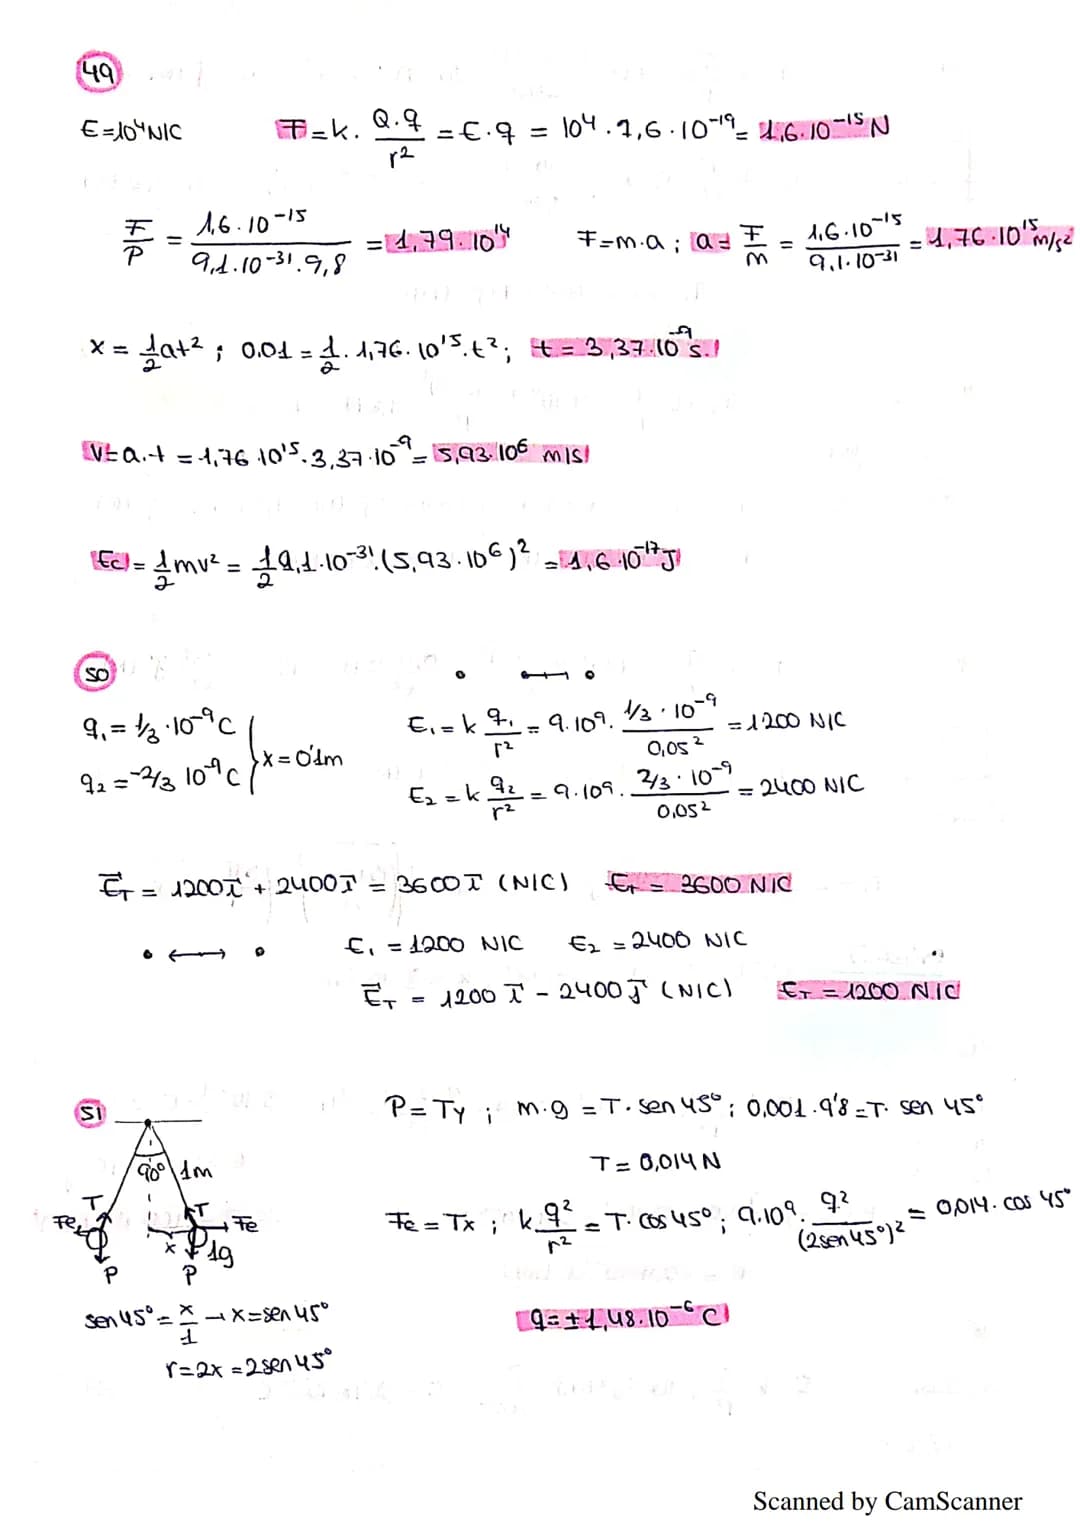 49
E=10⁴ N/C F=k. Q.q/r² = E.q = 10⁴.1,6.10⁻¹⁹= 1,6.10⁻¹⁵ N
F/P = 1,6.10⁻¹⁵/9,1.10⁻³¹.9,8 = 1,79.10¹⁴ F=m.a ; a= F/m = 1,6.10⁻¹⁵/9,1.10⁻³¹ = 1,76.10¹⁵ m/s²
x = 1/2at² ; 0.01 = 1/2. 1,76.10¹⁵.t²; t = 3,37.10⁻⁹ s.
V=a.t = 1,76.10¹⁵.3,37.10⁻⁹= 5,93.10⁶ m/s
Ec = 1/2mv² = 1/2 9,1.10⁻³¹.(5,93.10⁶)² = 1,6.10⁻¹⁷ J
50
q₁ = 1/3.10⁻⁹ C E₁ = k q₁/r² = 9.10⁹. 1/3.10⁻⁹/0,05² = 1200 N/C
x = 0'1m
q₂ = -2/3 10⁻⁹ C E₂ = k q₂/r² = 9.10⁹. 2/3.10⁻⁹/0,05² = 2400 N/C
E⃗T = 1200i⃗ + 2400i⃗ = 3600i⃗ (N/C) ET = 3600 N/C
E₁ = 1200 N/C E₂ = 2400 N/C
E⃗T = 1200 i⃗ - 2400 j⃗ (N/C) ET = 1200 N/C
51
P=Ty ; m.g = T.sen 45° ; 0,001.9'8 = T. sen 45°
90° 1m
T = 0,014 N
T T
Fe Fe
Fe = Tx ; k.q²/r² = T.cos 45° ; 9.10⁹. q²/(2sen45°)² = 0,014.cos 45°
x 1g
P P
sen 45° = x/1 → x=sen 45° q = ±1,48.10⁻⁶ C
r=2x = 2sen 45°
Scanned by CamScanner